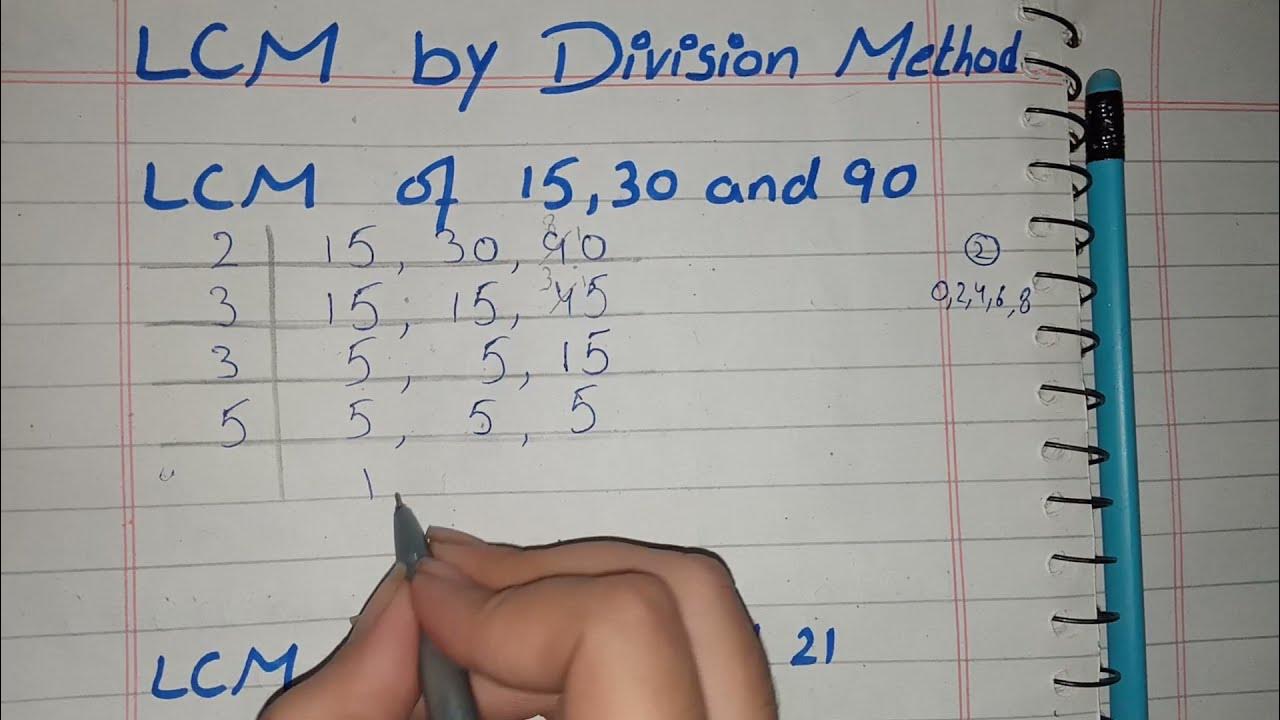 LCM by Division Method
LCM of 15, 30 and 90
2 15, 30, 90
②
3 15, 15, 45
0,2,4,6,8
3 5, 5, 15
5 5, 5, 5
1
LCM 21